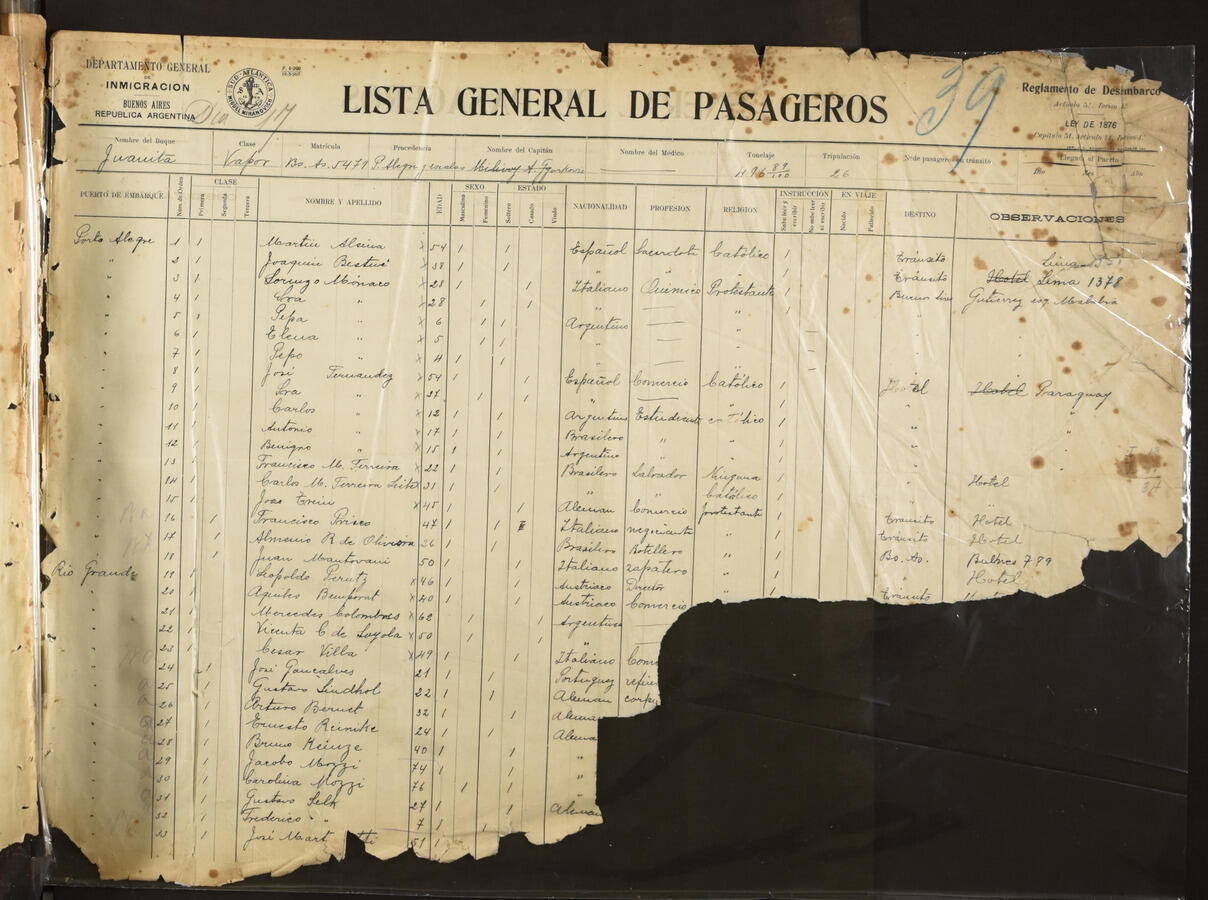 DEPARTAMENTO GENERAL
DE
INMIGRACION
BUENOS AIRES
REPUBLICA ARGENTINA
SUD-ATLANTICA
LISTA GENERAL DE PASAGEROS
39
Reglamento de Desimbarco
LEY DE 1876
Nombre del Buque Clase Matrícula Procedencia Nombre del Capitán Nombre del Médico Tonelaje Tripulación Nº de pasageros en tránsito Llegada al Puerto
Juanita Vapor Bs. As. 5479 26
Día Mes Año
PUERTO DE EMBARQUE Núm. de Orden CLASE Primera Segunda Tercera NOMBRE Y APELLIDO EDAD SEXO Masculino Femenino ESTADO Soltero Casado Viudo NACIONALIDAD PROFESION RELIGION INSTRUCCIÓN Sabe leer y escribir No sabe leer ni escribir EN VIAJE Nacido Fallecido DESTINO OBSERVACIONES
Porto Alegre 1 1 Martin Alsina x 54 1 1 Español Sacerdote Católico 1 Tránsito Lima
" 2 1 Joaquin x 38 1 1 " " " 1 Tránsito Hotel Lima 1378
" 3 1 Lorenzo Monaco x 28 1 1 Italiano Químico Protestante 1 Buenos Aires Gutierrez esq
" 4 1 Sra " x 28 1 1 " — " 1 "
" 5 1 Pepa " x 6 1 1 Argentino — " — "
" 6 1 Elena " x 5 1 1 " — " — "
" 7 1 Pepo " x 4 1 1 " — " — "
" 8 1 José Fernandez x 54 1 1 Español Comercio Católico 1 Hotel Hotel Paraguay
" 9 1 Sra " x 37 1 1 " — " 1 " "
" 10 1 Carlos " x 12 1 1 Argentino Estudiante católico 1 " "
" 11 1 Antonio " x 17 1 1 Brasilero " " 1 " "
" 12 1 Benigno " x 15 1 1 Argentino " " 1 "
" 13 1 Francisco M. Ferreira x 22 1 1 Brasilero Labrador Ninguna 1 " Hotel
" 14 1 Carlos M. Ferreira Leite x 31 1 1 " " Católico 1 "
" 15 1 Joao x 45 1 1 Aleman Comercio protestante 1 Tránsito Hotel
" 16 1 Francisco Prisco 47 1 1 Italiano negociante " 1 Tránsito Hotel
" 17 1 Almerio R de Oliveira 26 1 1 Brasilero Hotellero " 1 Bs. As. Bulnes 789
" 18 1 Juan Mantovani 50 1 1 Italiano zapatero " 1 " Hotel
Rio Grande 19 1 Leopoldo Perutz x 46 1 1 Austriaco Director " 1 Tránsito
" 20 1 Aquiles Bemporat x 40 1 1 Austriaco Comercio
" 21 1 Mercedes Colombres x 62 1 1 Argentina —
" 22 1 Vicenta C de Loyola x 50 1 1 " —
" 23 1 Cesar Villa x 49 1 1 Italiano Com
" 24 1 José Goncalves 21 1 1 Portuguez
" 25 1 Gustavo Lindhol 22 1 1 Aleman
" 26 1 Arturo Bernet 32 1 1 Aleman
" 27 1 Ernesto Reinike 24 1 1 Alema
" 28 1 Bruno Keinze 40 1 1 "
" 29 1 Jacobo Mozzi 74 1 1 "
" 30 1 Carolina Mozzi 76 1 1 "
" 31 1 Gustavo Selk 27 1 1 Aleman
" 32 1 Frederico " 7 1 1
" 33 1 José Mart 51 1